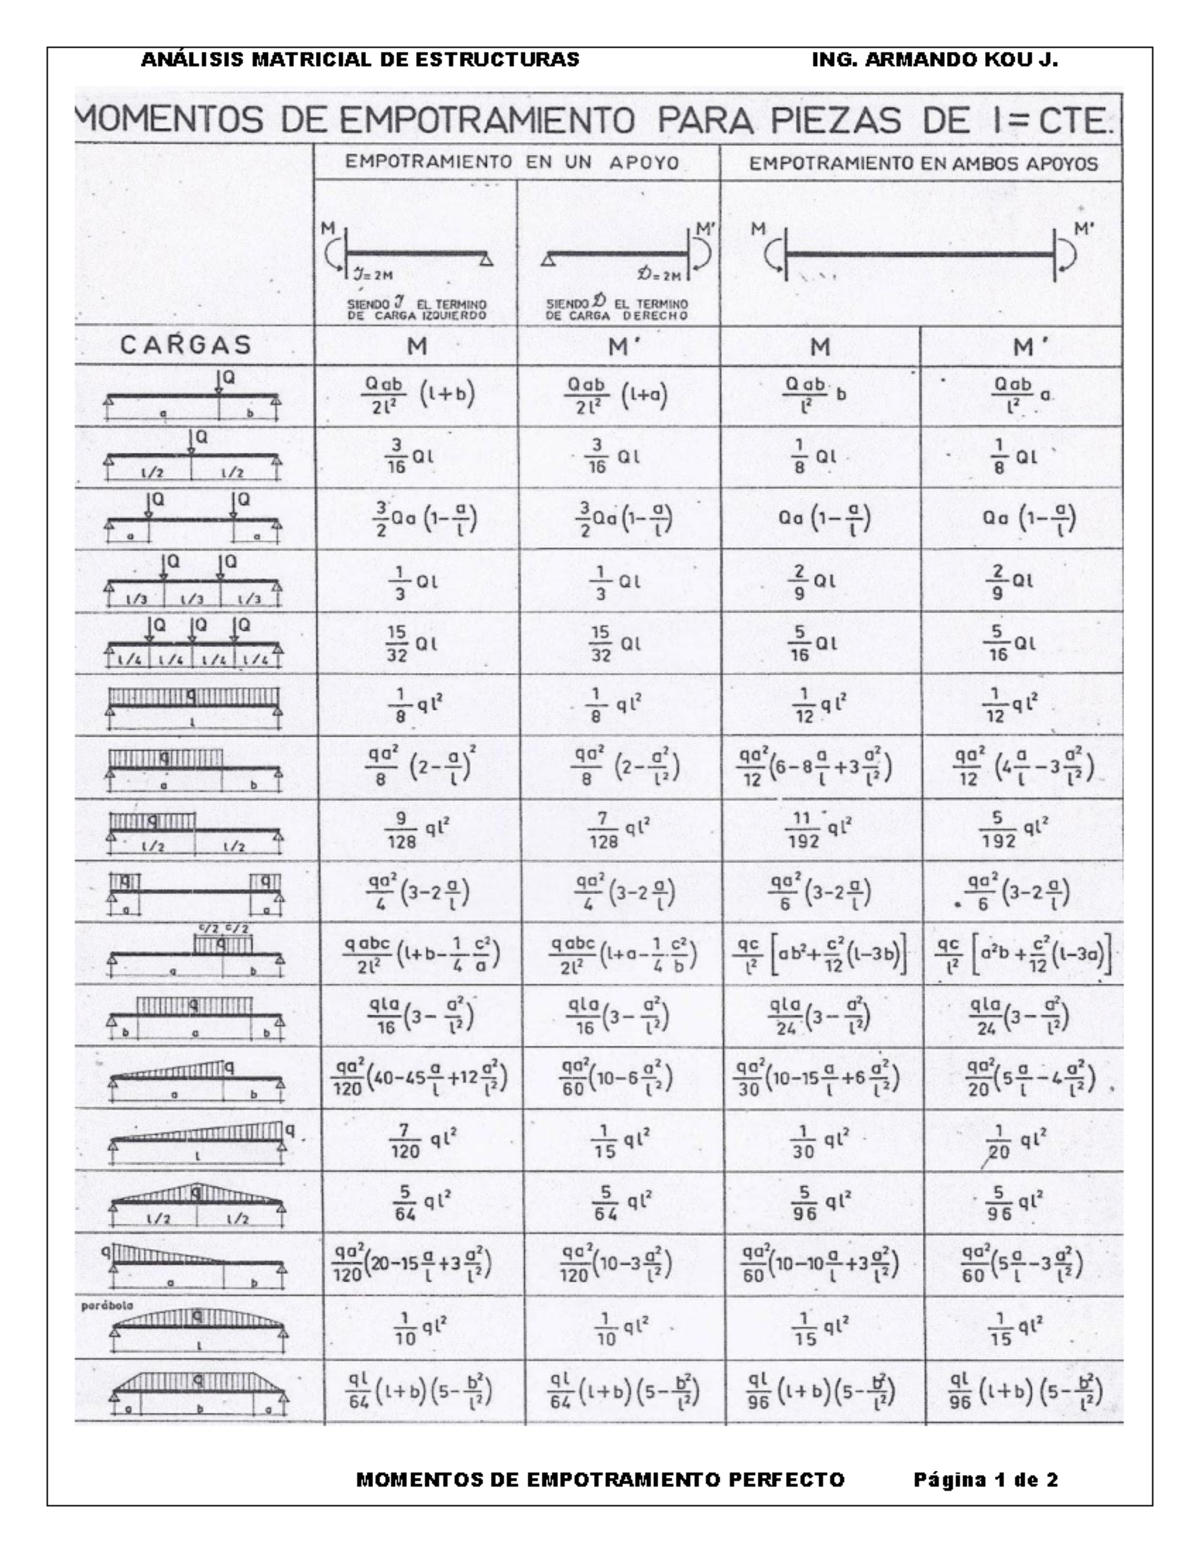 ANÁLISIS MATRICIAL DE ESTRUCTURAS ING. ARMANDO KOU J.
MOMENTOS DE EMPOTRAMIENTO PARA PIEZAS DE I = CTE.
EMPOTRAMIENTO EN UN APOYO EMPOTRAMIENTO EN AMBOS APOYOS
M M' M M'
ℐ = 2M 𝒟 = 2M
SIENDO ℐ EL TERMINO SIENDO 𝒟 EL TERMINO
DE CARGA IZQUIERDO DE CARGA DERECHO
CARGAS M M' M M'
Q a b Qab/2l² (l+b) Qab/2l² (l+a) Qab/l² b Qab/l² a
Q l/2 l/2 3/16 Ql 3/16 Ql 1/8 Ql 1/8 Ql
Q Q a a 3/2 Qa (1-a/l) 3/2 Qa (1-a/l) Qa (1-a/l) Qa (1-a/l)
Q Q l/3 l/3 l/3 1/3 Ql 1/3 Ql 2/9 Ql 2/9 Ql
Q Q Q l/4 l/4 l/4 l/4 15/32 Ql 15/32 Ql 5/16 Ql 5/16 Ql
q l 1/8 ql² 1/8 ql² 1/12 ql² 1/12 ql²
q a b qa²/8 (2-a/l)² qa²/8 (2-a²/l²) qa²/12 (6-8a/l+3a²/l²) qa²/12 (4a/l-3a²/l²)
q l/2 l/2 9/128 ql² 7/128 ql² 11/192 ql² 5/192 ql²
q q a a qa²/4 (3-2a/l) qa²/4 (3-2a/l) qa²/6 (3-2a/l) qa²/6 (3-2a/l)
c/2 c/2 q a b qabc/2l² (l+b-1/4 c²/a) qabc/2l² (l+a-1/4 c²/b) qc/l² [ab²+c²/12(l-3b)] qc/l² [a²b+c²/12(l-3a)]
q b a b qla/16 (3-a²/l²) qla/16 (3-a²/l²) qla/24 (3-a²/l²) qla/24 (3-a²/l²)
q a b qa²/120 (40-45a/l+12a²/l²) qa²/60 (10-6a²/l²) qa²/30 (10-15a/l+6a²/l²) qa²/20 (5a/l-4a²/l²)
q l 7/120 ql² 1/15 ql² 1/30 ql² 1/20 ql²
q l/2 l/2 5/64 ql² 5/64 ql² 5/96 ql² 5/96 ql²
q a b qa²/120 (20-15a/l+3a²/l²) qa²/120 (10-3a²/l²) qa²/60 (10-10a/l+3a²/l²) qa²/60 (5a/l-3a²/l²)
parábola q l 1/10 ql² 1/10 ql² 1/15 ql² 1/15 ql²
q a b a ql/64 (l+b)(5-b²/l²) ql/64 (l+b)(5-b²/l²) ql/96 (l+b)(5-b²/l²) ql/96 (l+b)(5-b²/l²)
MOMENTOS DE EMPOTRAMIENTO PERFECTO Página 1 de 2